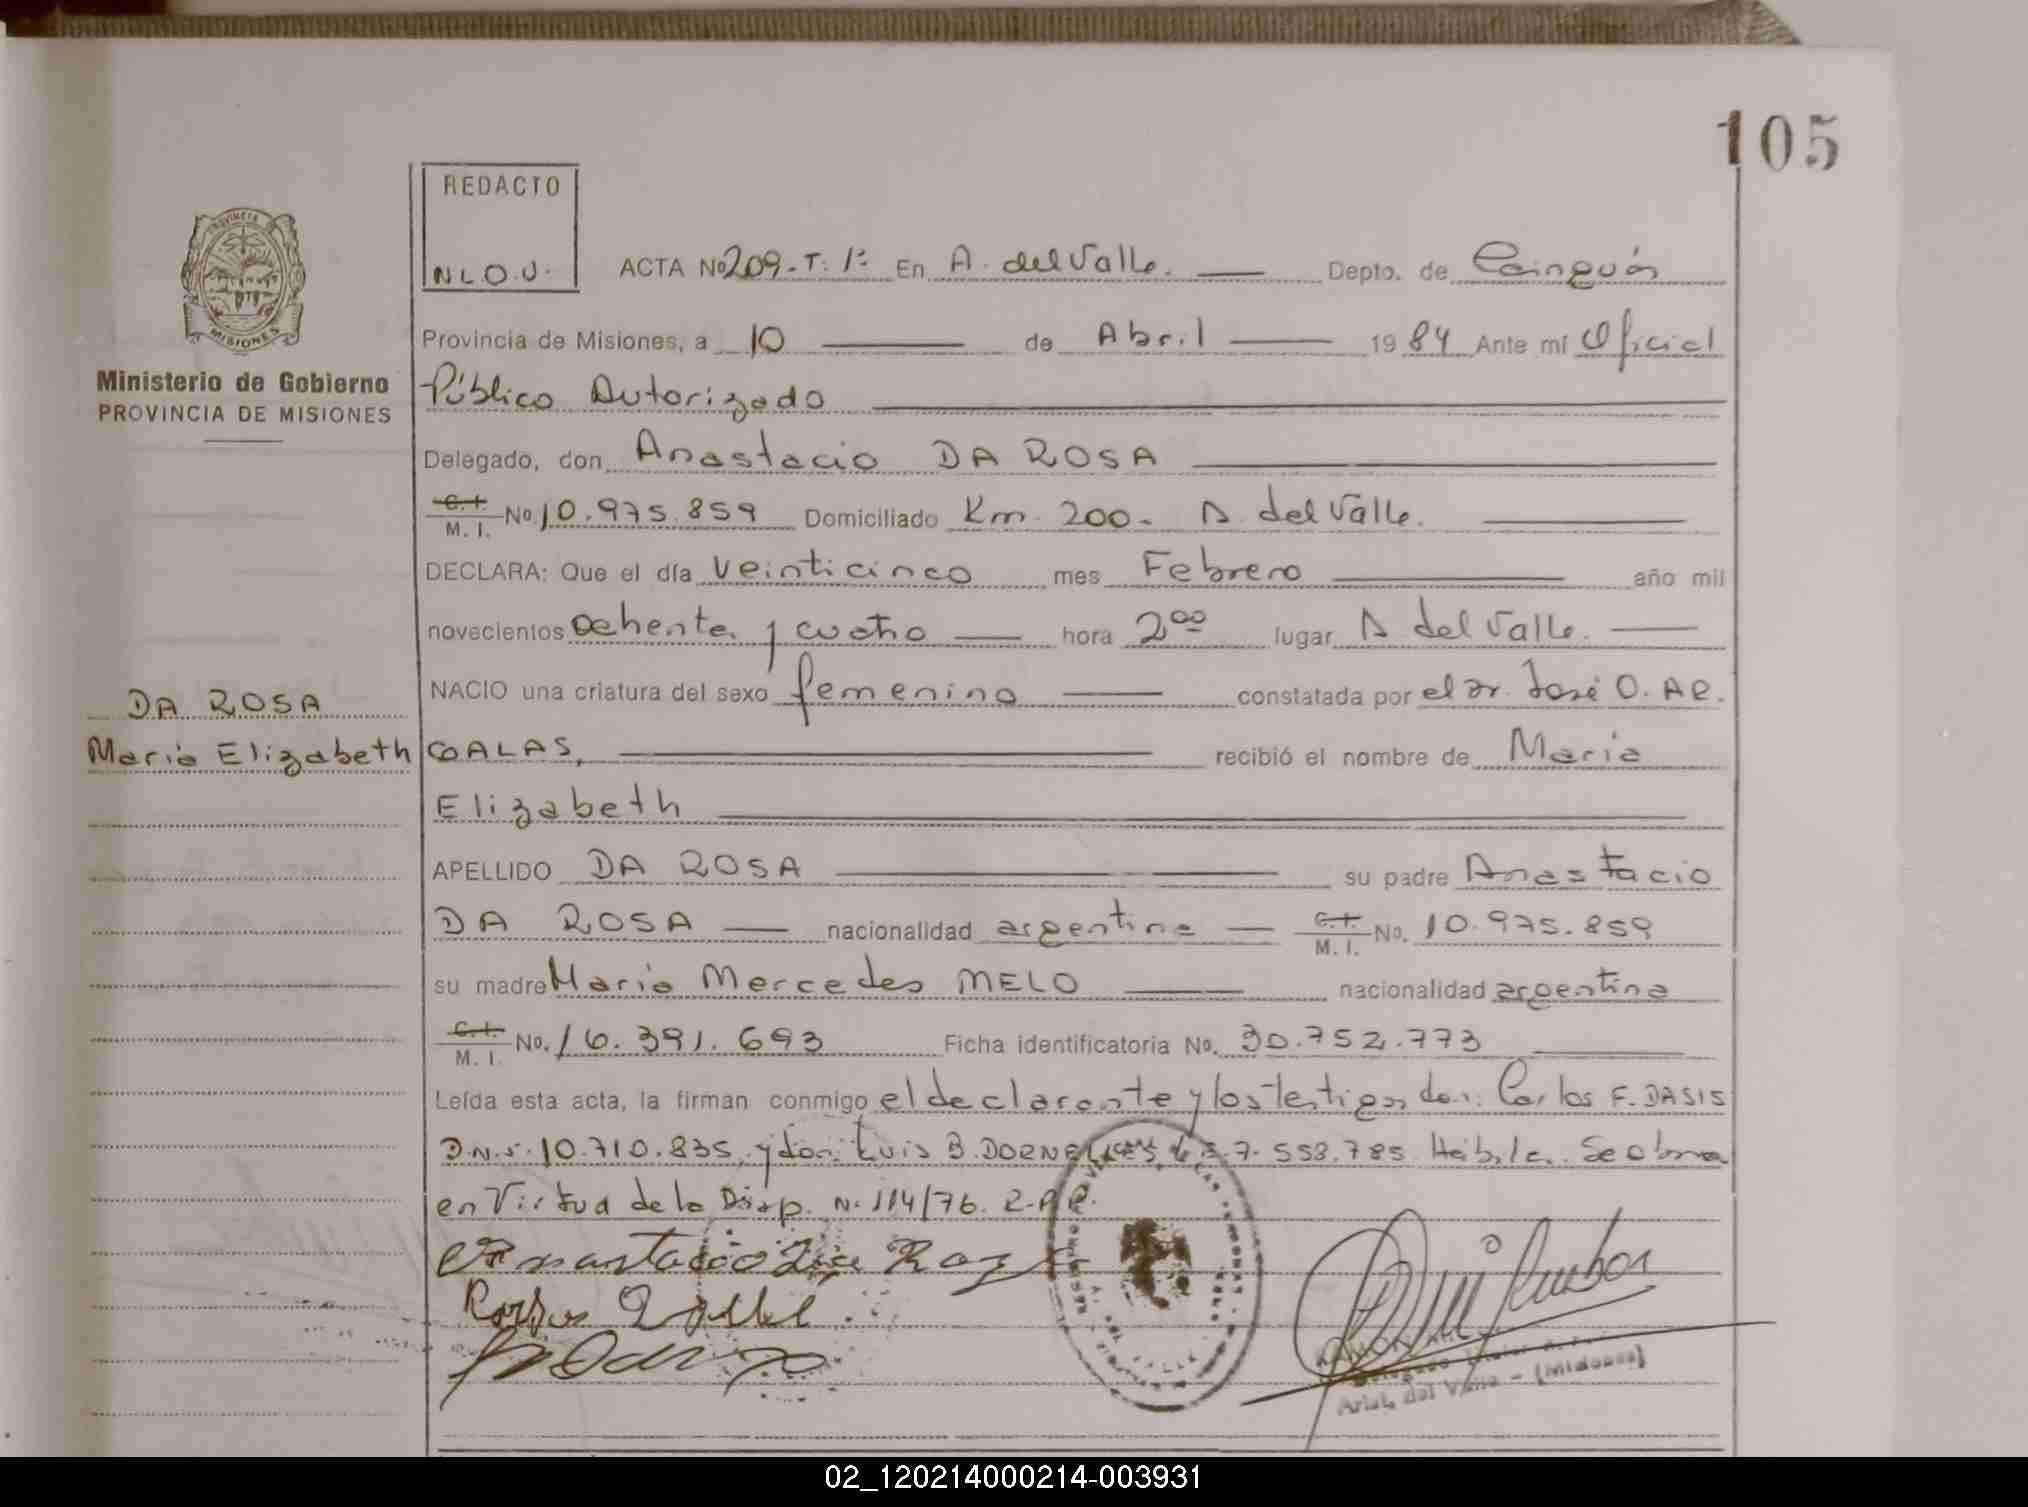 105
REDACTO
N.L.O.U.
ACTA Nº 209-T: 1º En A. del Valle. Depto. de Cainguás
PROVINCIA
MISIONES
Provincia de Misiones, a 10 de Abril 1984 Ante mí Oficial
Ministerio de Gobierno
PROVINCIA DE MISIONES
Público Autorizado
Delegado, don Anastacio DA ROSA
C. I.
M. I. No. 10.975.859 Domiciliado Km. 200- A. del Valle.
DECLARA: Que el día veinticinco mes Febrero año mil
novecientos ochenta y cuatro hora 2⁰⁰ lugar A del Valle.
NACIO una criatura del sexo femenino constatada por el Dr. José O. AR.
DA ROSA
María Elizabeth
COALAS, recibió el nombre de María
Elizabeth
APELLIDO DA ROSA su padre Anastacio
DA ROSA nacionalidad argentina C. I. M. I. No. 10.975.859
su madre María Mercedes MELO nacionalidad argentina
C. I.
M. I. No. 16.391.693 Ficha identificatoria No. 30.752.773
Leída esta acta, la firman conmigo el declarante y los testigos don: Carlos F. DASIS
D.N.I. 10.710.835, y don: Luis B. 7.558.785 Hábiles. Se obra
en Virtud de la Disp. N. 114/76. R.P.P.
Anastacio Da Rosa
Delegado
Arist. del Valle - (Misiones)
02_120214000214-003931